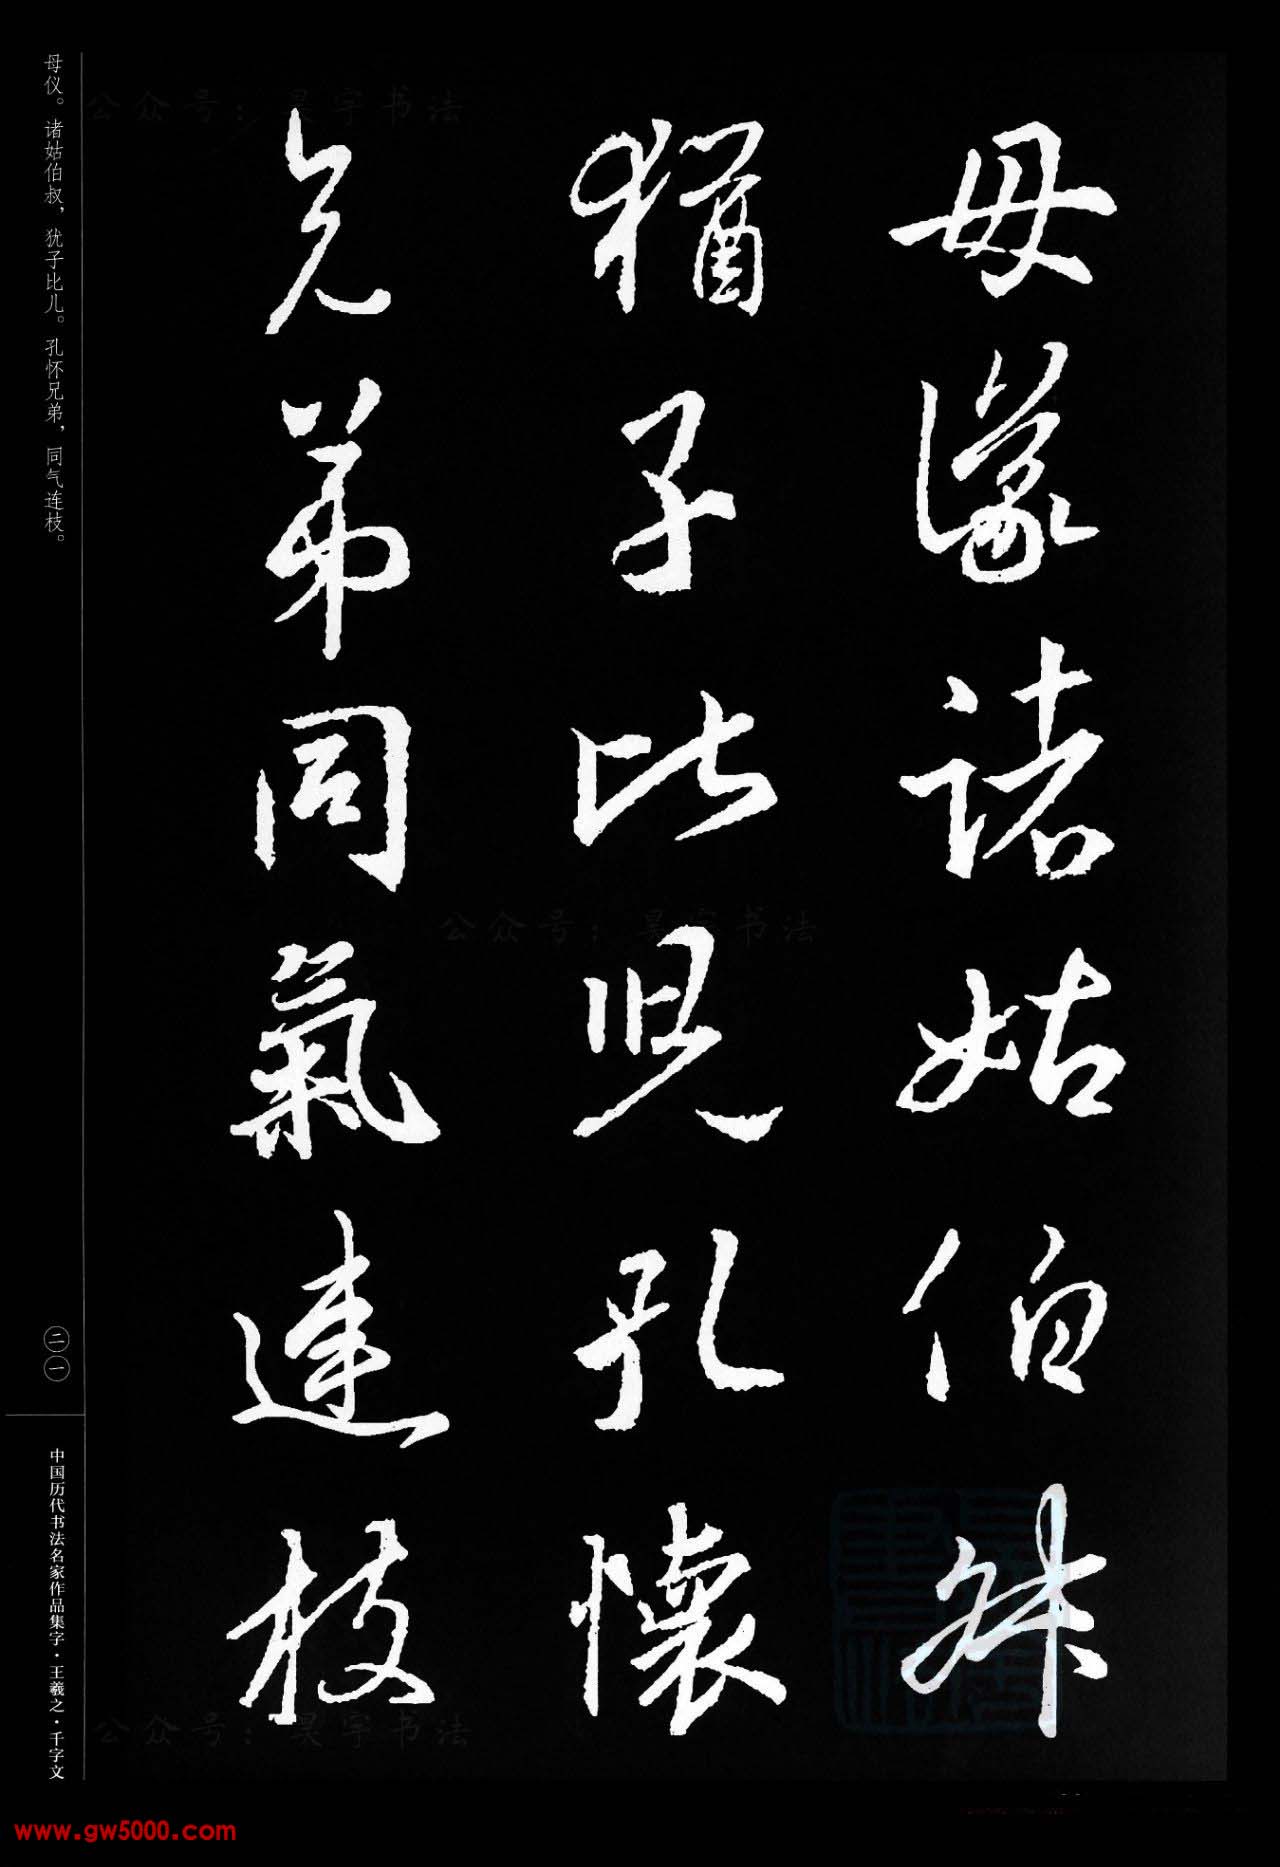 母儀諸姑伯叔
猶子比兒孔懷
兄弟同氣連枝
母仪。诸姑伯叔，犹子比儿。孔怀兄弟，同气连枝。
二一
中国历代书法名家作品集字·王羲之·千字文
公众号：昊宇书法
公众号：昊宇书法
公众号：昊宇书法
www.gw5000.com